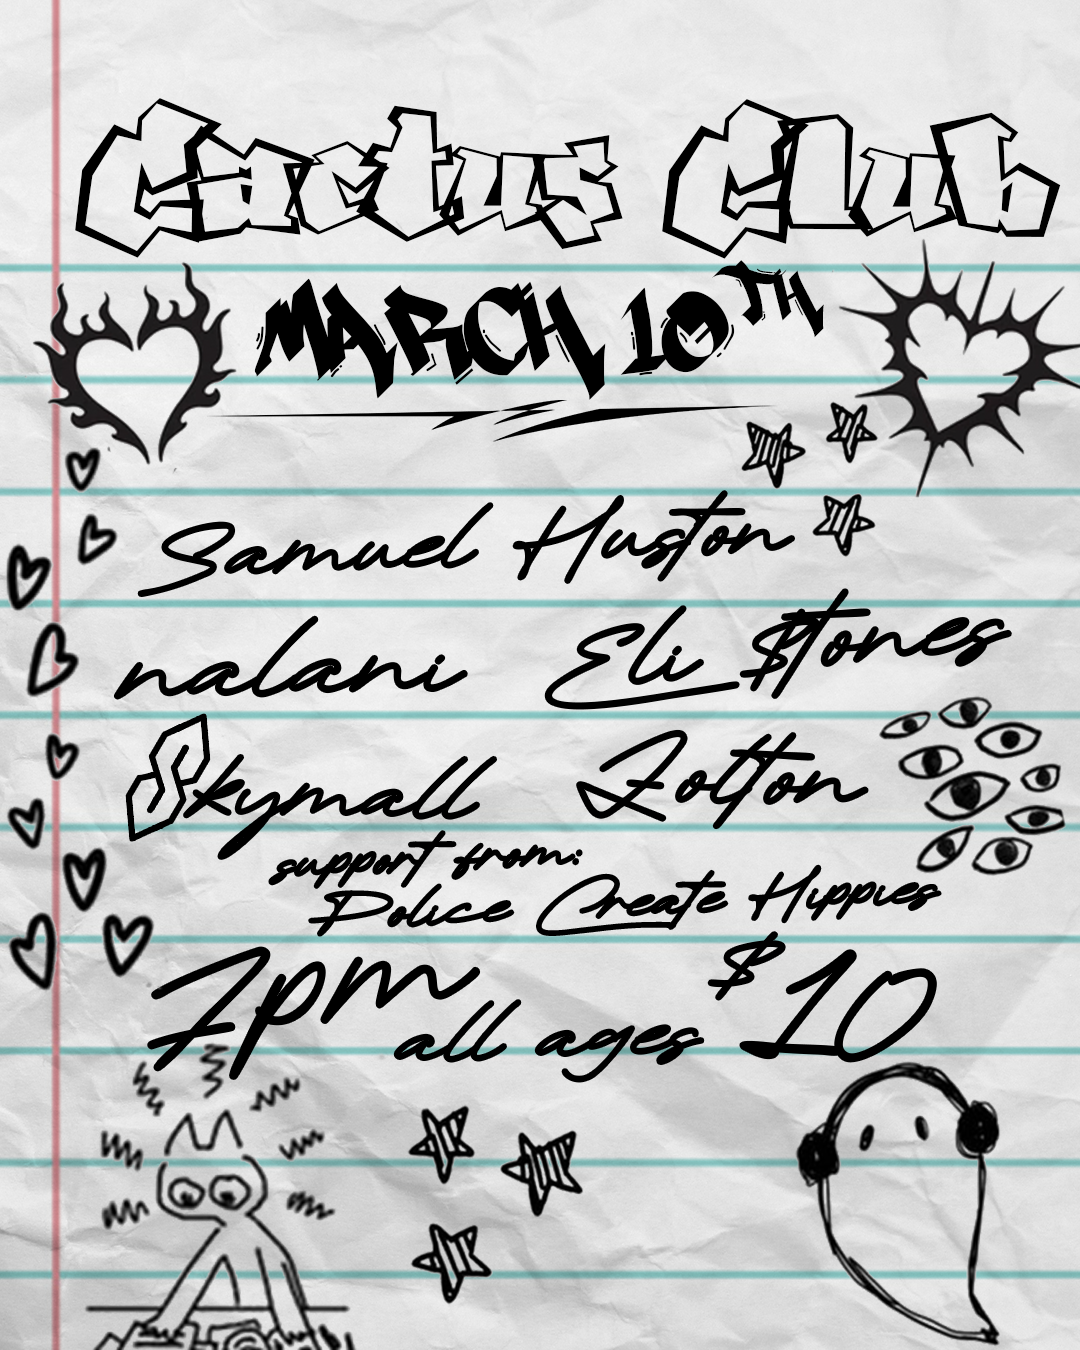 Cactus Club
MARCH 10TH
Samuel Huston
nalani Eli $tones
Skymall Zolton
support from:
Police Create Hippies
7pm all ages $10